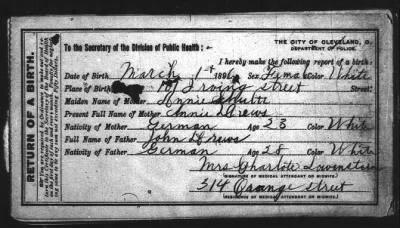 RETURN OF A BIRTH.
THE CITY OF CLEVELAND, O.
DEPARTMENT OF POLICE.
To the Secretary of the Division of Public Health:
I hereby make the following report of a birth:
Date of Birth March 1st Sex Female Color White
Place of Birth Irving street Street
Maiden Name of Mother Annie Schutte
Present Full Name of Mother Annie Drews
Nativity of Mother German Age 23 Color White
Full Name of Father John Drews
Nativity of Father German Age 28 Color White
Mrs Charlote
(SIGNATURE OF MEDICAL ATTENDANT OR MIDWIFE.)
314 Orange street
(RESIDENCE OF MEDICAL ATTENDANT OR MIDWIFE)